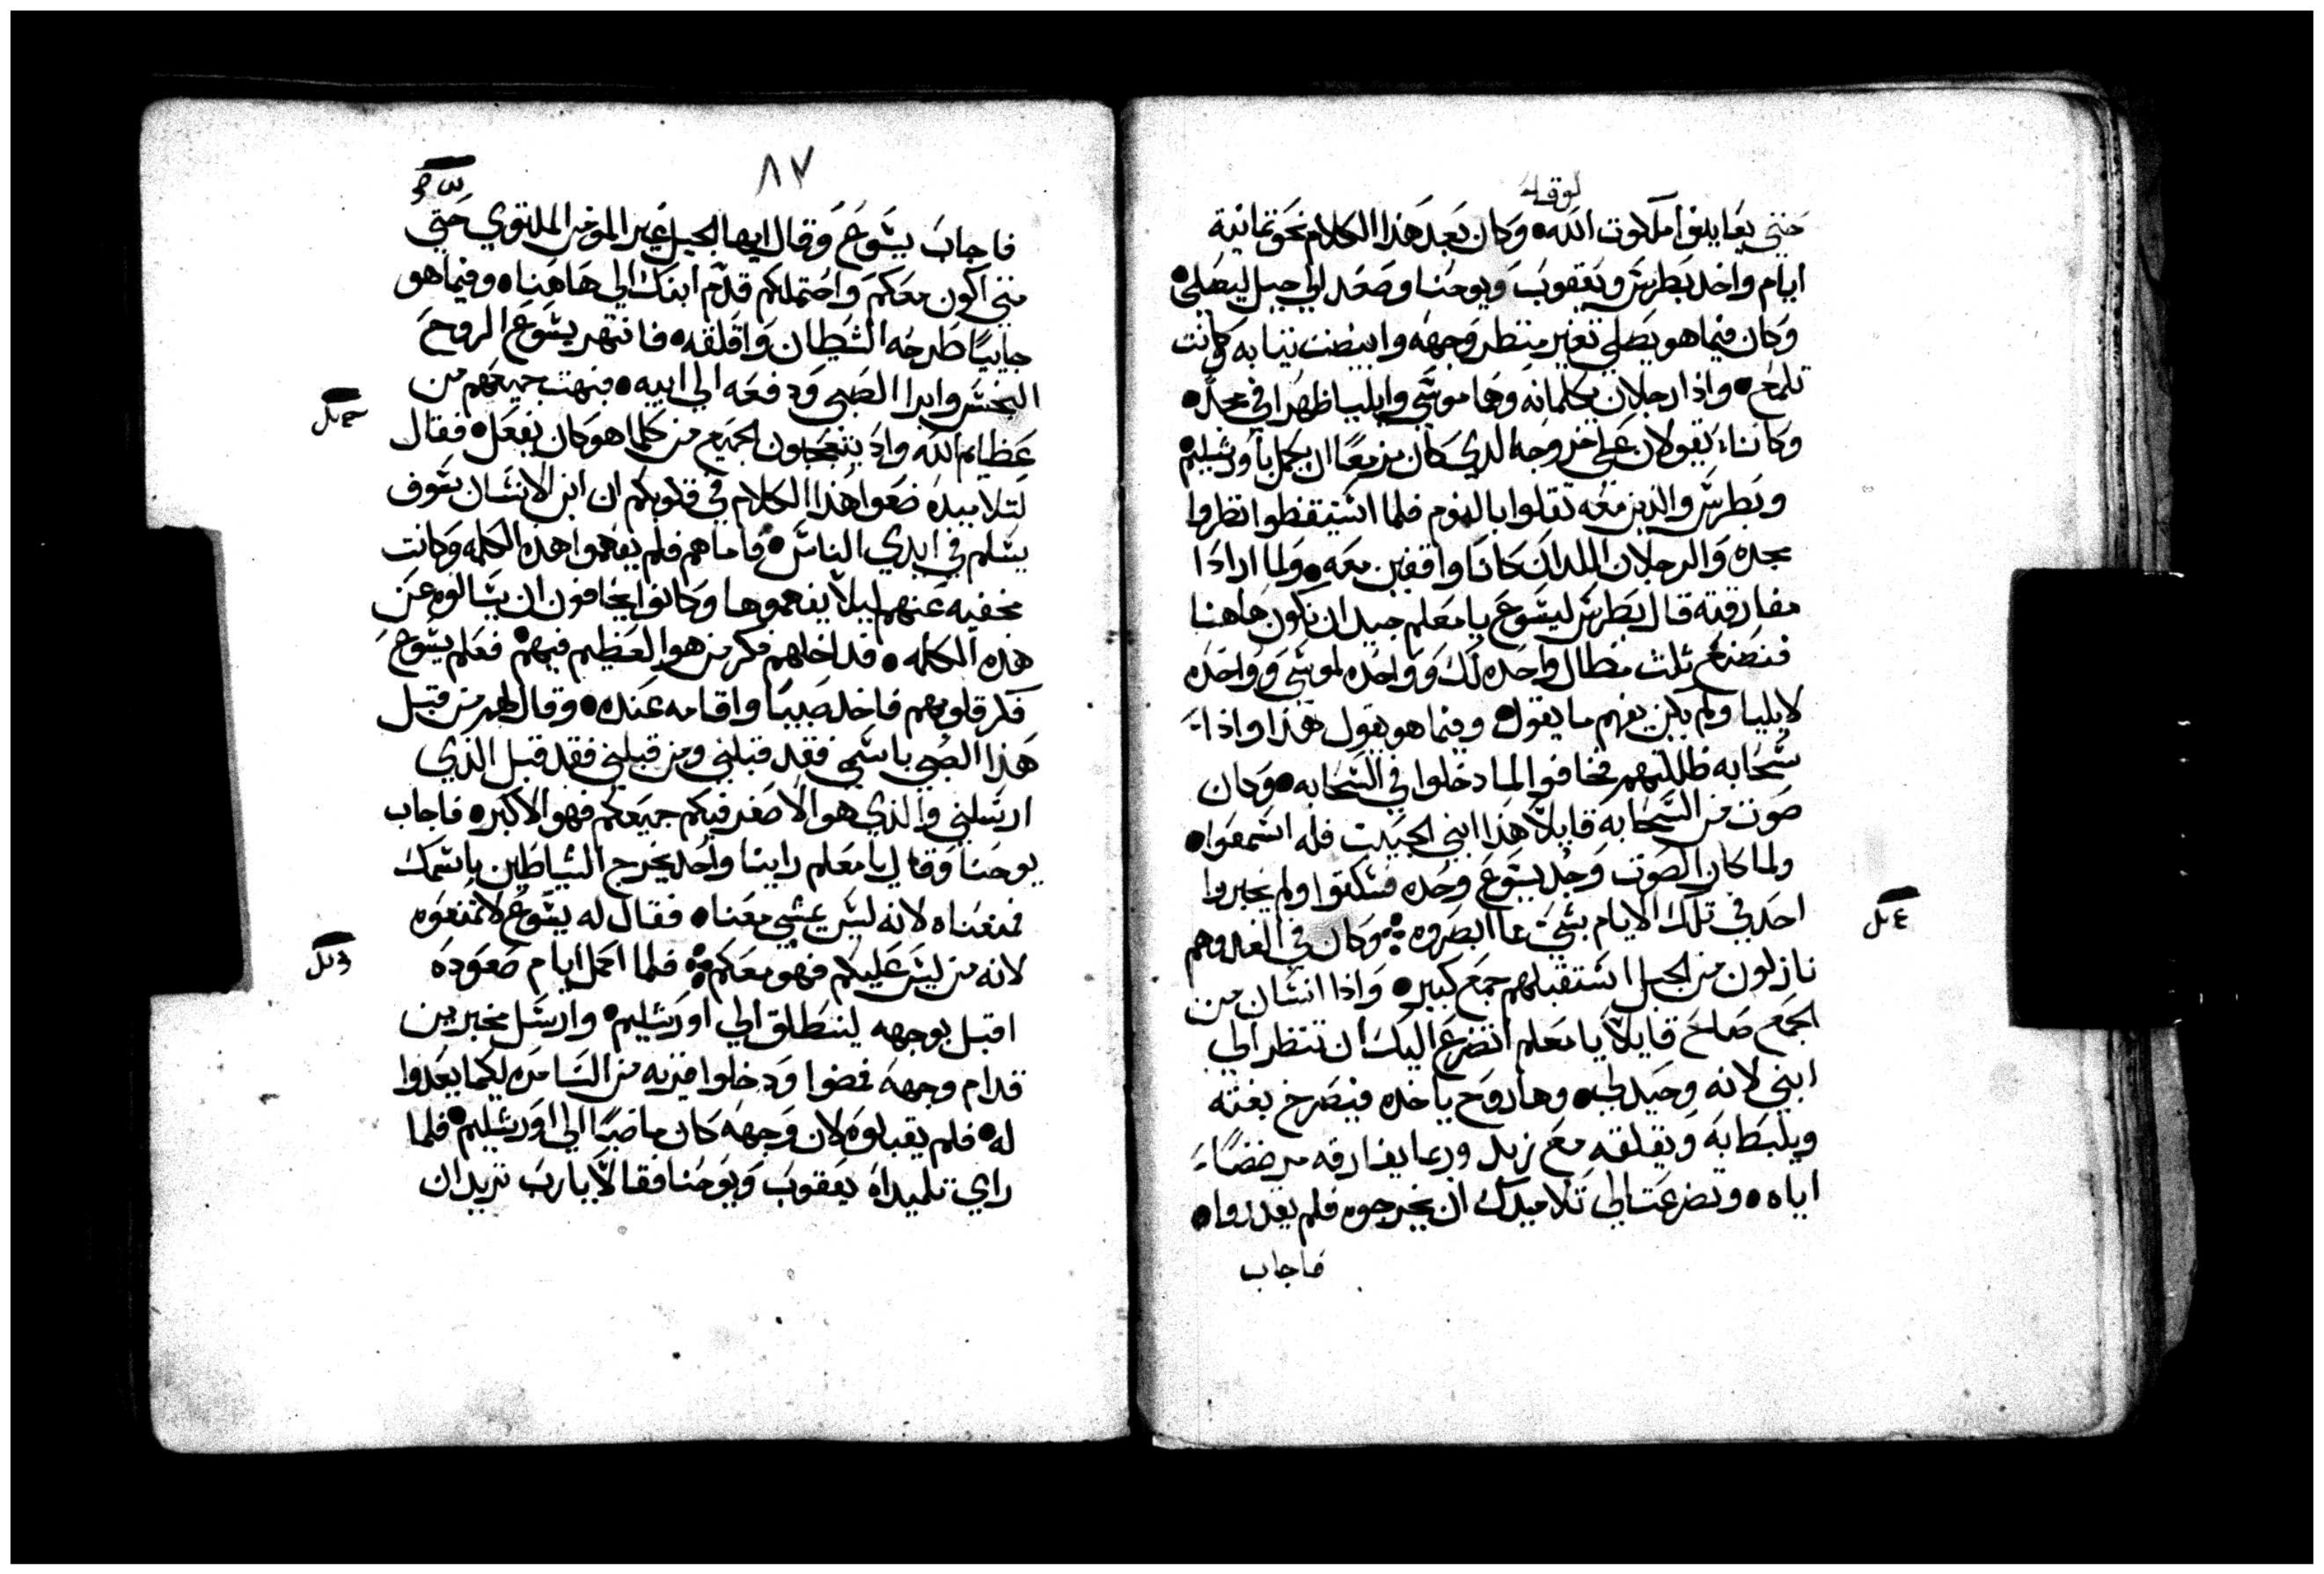 لوقا
حتي يعاينوا ملكوت الله • وكان بعد هذا الكلام نحو ثمانية
ايام واخد بطرس ويعقوب ويوحنا وصعد الي جبل ليصلي •
وكان فيما هو يصلي تغير منظر وجهه وابيضت تيابه وكانت
تلمع • واذا رجلان يكلمانه وهما موسي وايليا ظهرا في مجد •
وكانا يقولان علي خروجه الدي كان مزمعا ان يكمل باورشليم •
وبطرس والدين معه تقلوا بالنوم فلما استيقظوا نظروا
مجده والرجلان اللدان كانا واقفين معه • ولما ارادا
مفارقته قال بطرس ليسوع يا معلم جيد ان نكون هاهنا
فنصنع ثلث مظال واحده لك وواحده لموسي وواحده
لايليا ولم يكن يفهم ما يقول • وفيما هو يقول هذا واذا
سحابه ظللتهم فخافوا لما دخلوا في السحابه • وكان
صوت من السحابه قايلا هذا ابني الحبيب فله اسمعوا •
ولما كان الصوت وجد يسوع وحده فسكتوا ولم يخبروا
احد في تلك الايام بشي مما ابصروه ⁘ وكان في الغد وهم
نازلون من الجبل استقبلهم جمع كبير • واذا انسان من
الجمع صاح قايلا يا معلم اتضرع اليك ان تنظر الي
ابني لانه وحيد لي • وها روح ياخده فيصرخ بغته
ويلبط به ويقلقه مع زبد وربما يفارقه مرضضا
اياه • وتضرعت الي تلاميدك ان يخرجوه فلم يقدروا •
فاجاب
٨٧
فاجاب يسوع وقال ايها الجيل غير المومن الملتوي حتي
متي اكون معكم واحتملكم قدم ابنك الي هاهنا • وفيما هو
جاييا طرحه الشيطان واقلقه • فانتهر يسوع الروح
النجس وابرا الصبي ودفعه الي ابيه • فبهت جميعهم من
عظايم الله واد يتعجبون الجميع من كلما هو كان يفعل • فقال
لتلاميده ضعوا هدا الكلام في قلوبكم ان ابن الانسان سوف
يسلم في ايدي الناس • فاما هم فلم يفهموا هده الكلمه وكانت
مخفيه عنهم ليلا يفهموها وكانوا يخافون ان يسالوه عن
هذه الكلمه • فداخلهم فكر من هو العظيم فيهم • فعلم يسوع
فكر قلوبهم فاخد صبيا واقامه عنده • وقال لهم من قبل
هذا الصبي باسمي فقد قبلني ومن قبلني فقد قبل الذي
ارسلني والذي هو الاصغر فيكم جميعكم فهو الاكبر • فاجاب
يوحنا وقال يا معلم راينا واحد يخرج الشياطين باسمك
فمنعناه لانه ليس يمشي معنا • فقال له يسوع لا تمنعوه
لانه من ليس عليكم فهو معكم ⁘ فلما اكمل ايام صعوده
اقبل بوجهه لينطلق الي اورشليم • وارسل مخبرين
قدام وجهه فمضوا ودخلوا قريه من السامره لكيما يعدوا
له • فلم يقبلوه لان وجهه كان ماضيا الي اورشليم • فلما
راي تلميداه يعقوب ويوحنا فقالا يا رب تريد ان